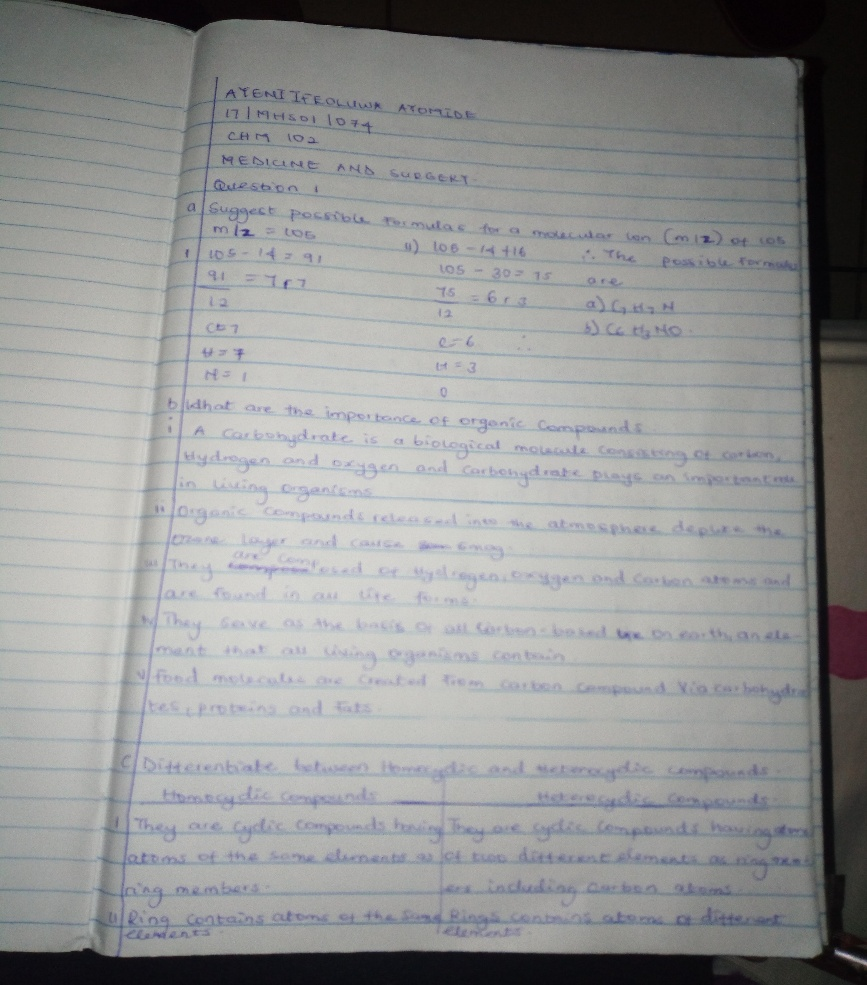 AYENI IFEOLUWA AYOMIDE
17/MHS01/074
CHM 102
MEDICINE AND SURGERY.
Question 1
a Suggest possible formulas for a molecular ion (m/z) of 105
m/z = 105
i 105 - 14 = 91
91/12 = 7 r 7
C = 7
H = 7
N = 1
ii) 105 - 14 + 16
105 - 30 = 75
75/12 = 6 r 3
C = 6
H = 3
O
∴ The possible formulas
are
a) C7H7N
b) C6H3NO.
b What are the importance of organic compounds.
i A carbohydrate is a biological molecule consisting of carbon,
Hydrogen and oxygen and carbohydrate plays an important role
in living organisms
ii Organic compounds released into the atmosphere deplete the
ozone layer and cause smog.
iii They are composed of Hydrogen, oxygen and carbon atoms and
are found in all life forms.
iv They serve as the basis of all carbon-based life on earth, an ele-
ment that all living organisms contain
v food molecules are created from carbon compound via carbohydra
tes, proteins and fats.
C Differentiate between Homocyclic and Heterocyclic compounds.
Homocyclic compounds
Heterocyclic compounds.
i They are cyclic compounds having
atoms of the same elements as
ring members.
ii Ring contains atoms of the same
elements.
They are cyclic compounds having atoms
of two different elements as ring mem
ers including carbon atoms.
Rings contains atoms of different
elements.